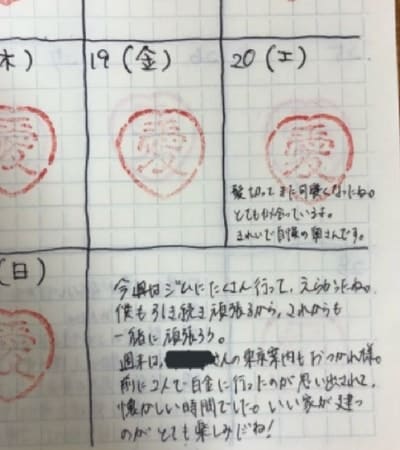 木)
19 (金)
20 (土)
愛
愛
愛
髪切ってまた可愛くなったね。
とてもにあっています。
きれいで自慢の奥さんです。
(日)
愛
今週はジムにたくさん行って、えらかったね。
僕も引き続き頑張るから、これからも
一緒に頑張ろう。
週末は、さんの東京案内もおつかれ様。
前に2人で白金に行ったのが思い出されて、
懐かしい時間でした。いい家が建つ
のがとても楽しみだね!